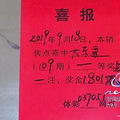 喜报
2019年9月18日,本销
售点喜中大乐透
(109期)一等奖
注,奖金1801万
体彩03705